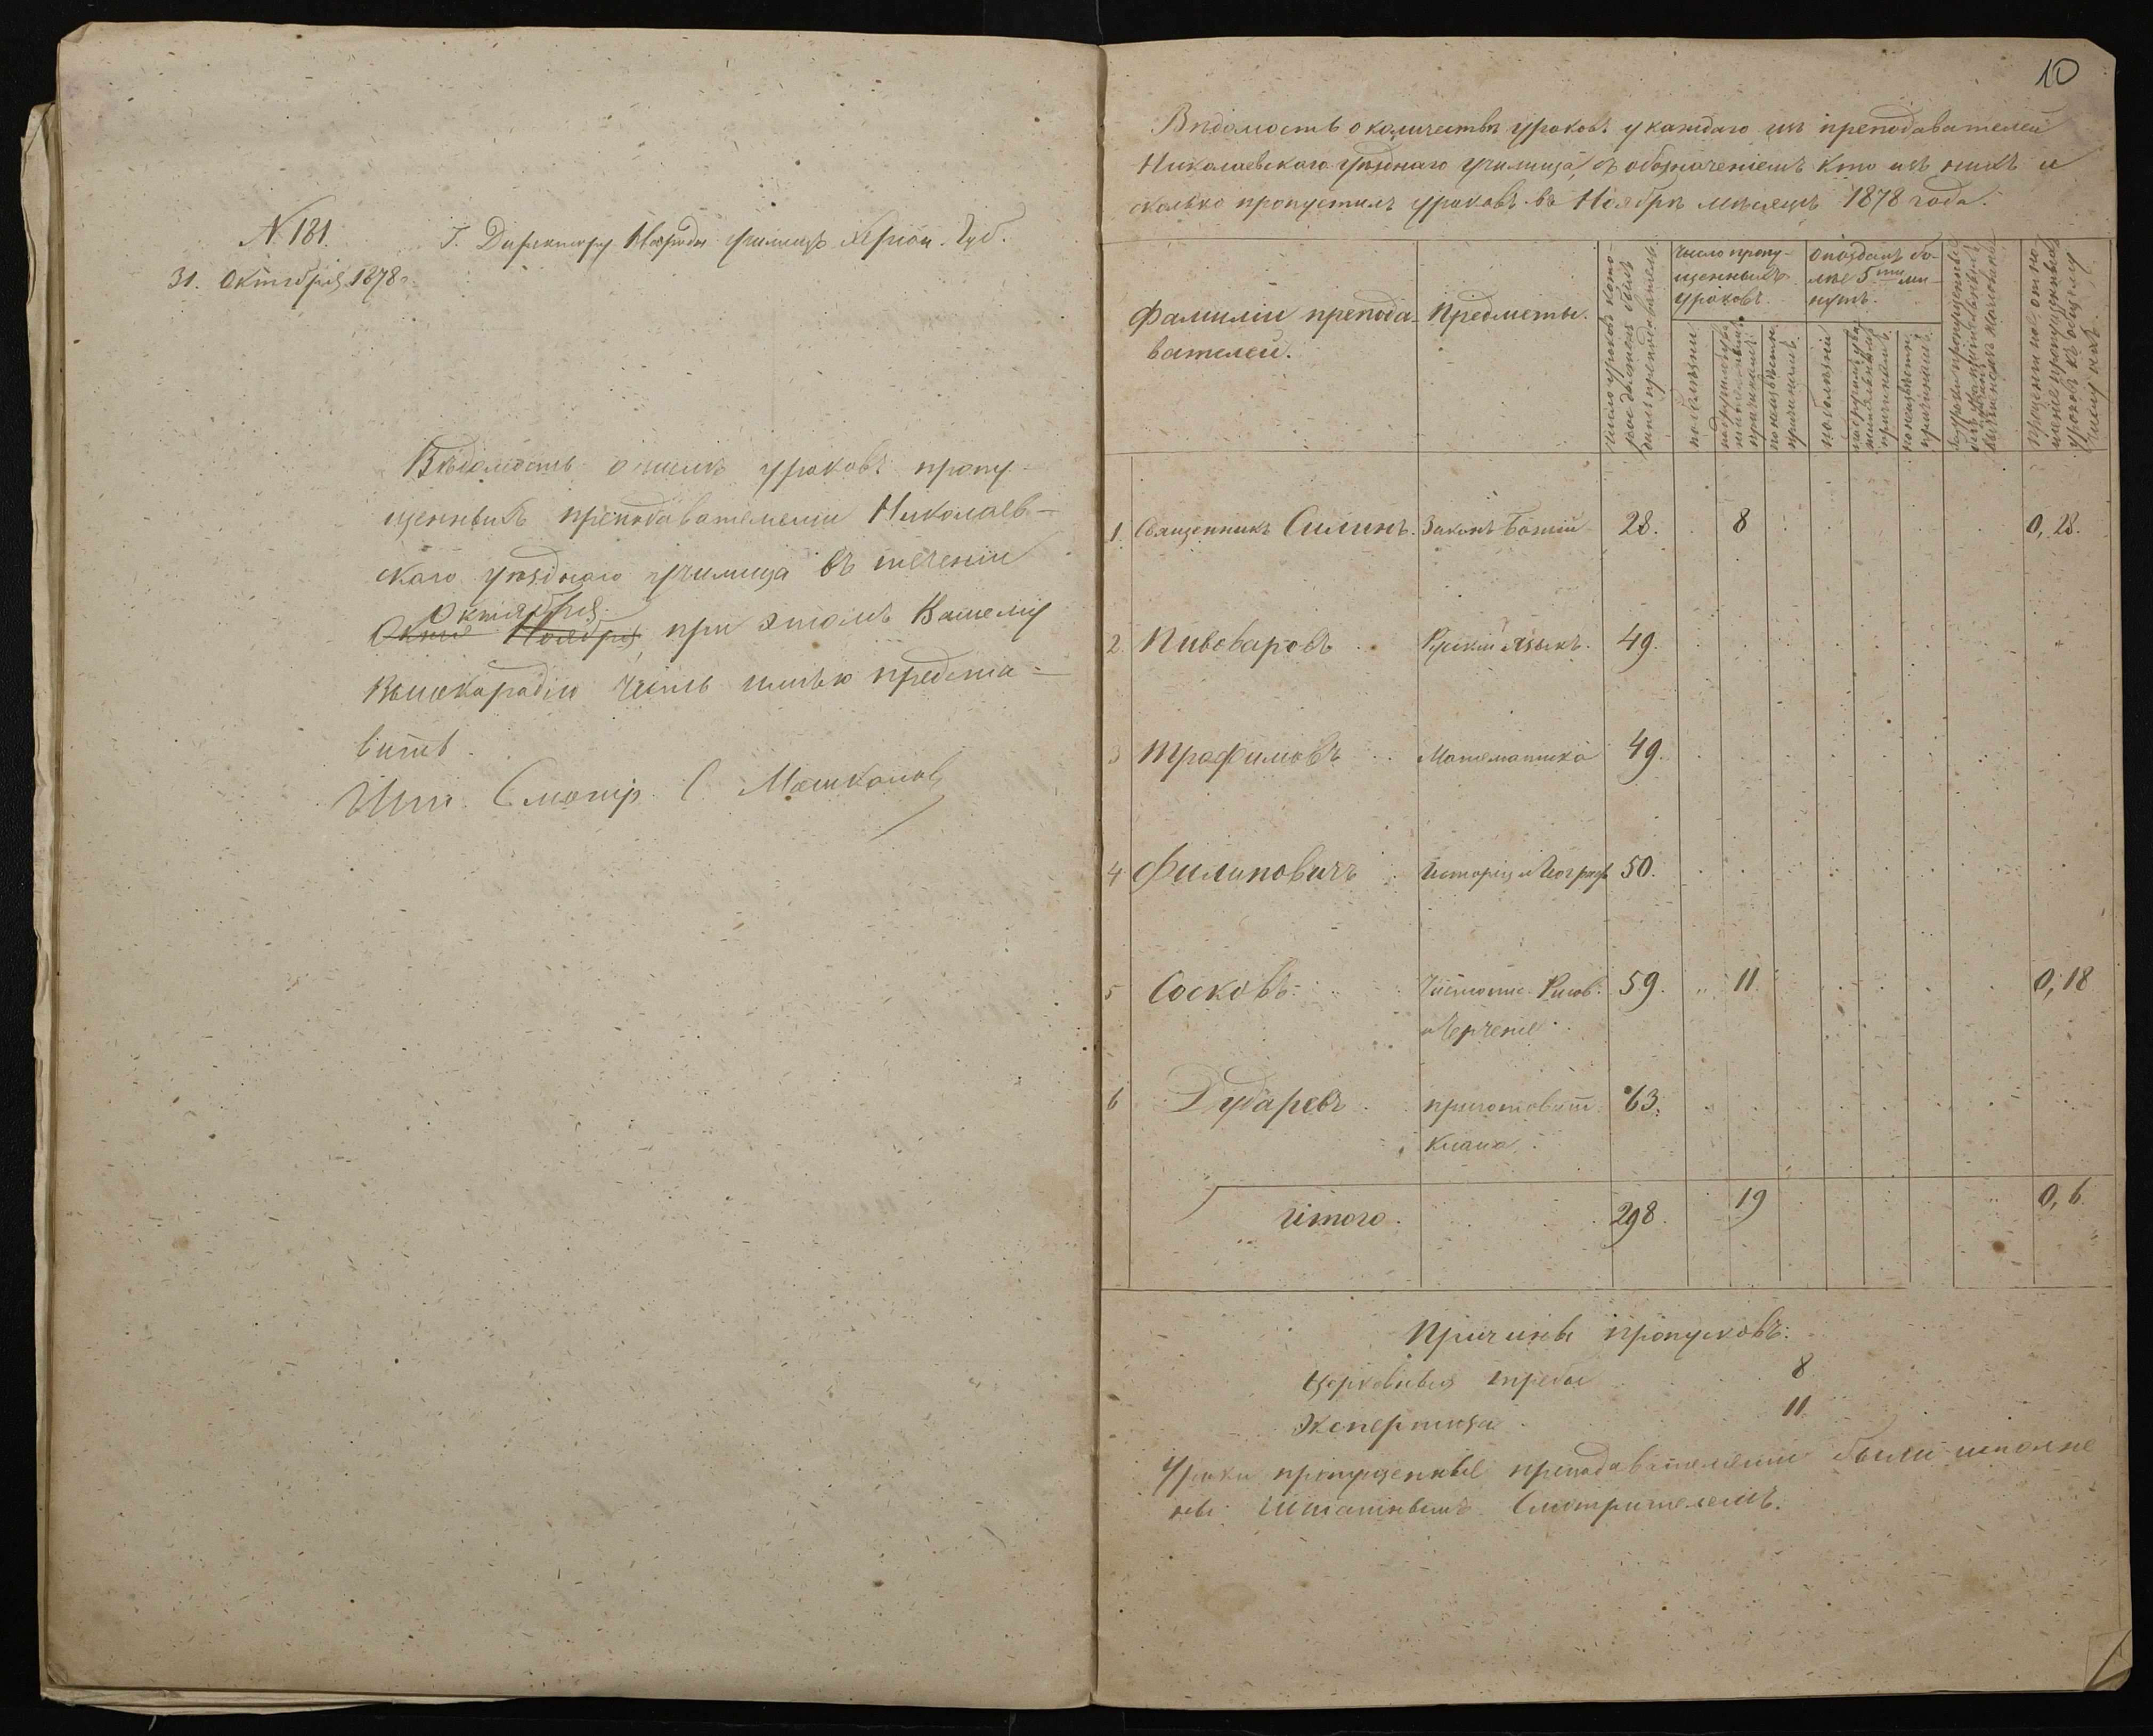 N. 181.
31. Октября 1878 г.
Г. Директору Народн училищъ Херсон. Губ.
Вѣдомость о числѣ уроковъ пропу-
щенныхъ преподавателями Николаев-
скаго уѣзднаго училища въ теченіи
Октября
Октя Ноября, при этомъ Вашему
Высокородію честь имѣю предста-
вить.
Шт. Смотр. С. Машкалов
10
Вѣдомость о количествѣ уроковъ у каждаго изъ преподавателей
Николаевскаго уѣзднаго училища, съ обозначеніемъ кто изъ нихъ и
сколько пропустилъ уроковъ въ Ноябрѣ мѣсяцѣ 1878 года.
Фамиліи препода-
вателей.
Предметы.
число уроковъ кото-
рое долженъ былъ
дать преподаватель
число пропу-
щенныхъ
уроковъ.
по болѣзни
по неизвѣстн.
причинамъ.
опоздалъ бо-
лѣе 5 ти ми-
нутъ.
по болѣзни
по неизвѣстн.
причинамъ.
1. Священникъ Силинъ. Законъ Божій 28. 8 0, 28.
2. Пивоваровъ Русскій языкъ. 49.
3 Трофимовъ Математика 49.
4 Филиповичъ Исторія и Геогр. 50.
5 Сосковъ Чистопис. Рисов. 59. 11. 0, 18
и Черченіе
6 Дударевъ приготовит. 63.
Класса.
Итого. 298. 19 0, 6.
Причины пропусковъ:
Церковныя требы 8
Экспертиза 11
Уроки пропущенные преподавателями были исполне
ны Штатнымъ Смотрителемъ.